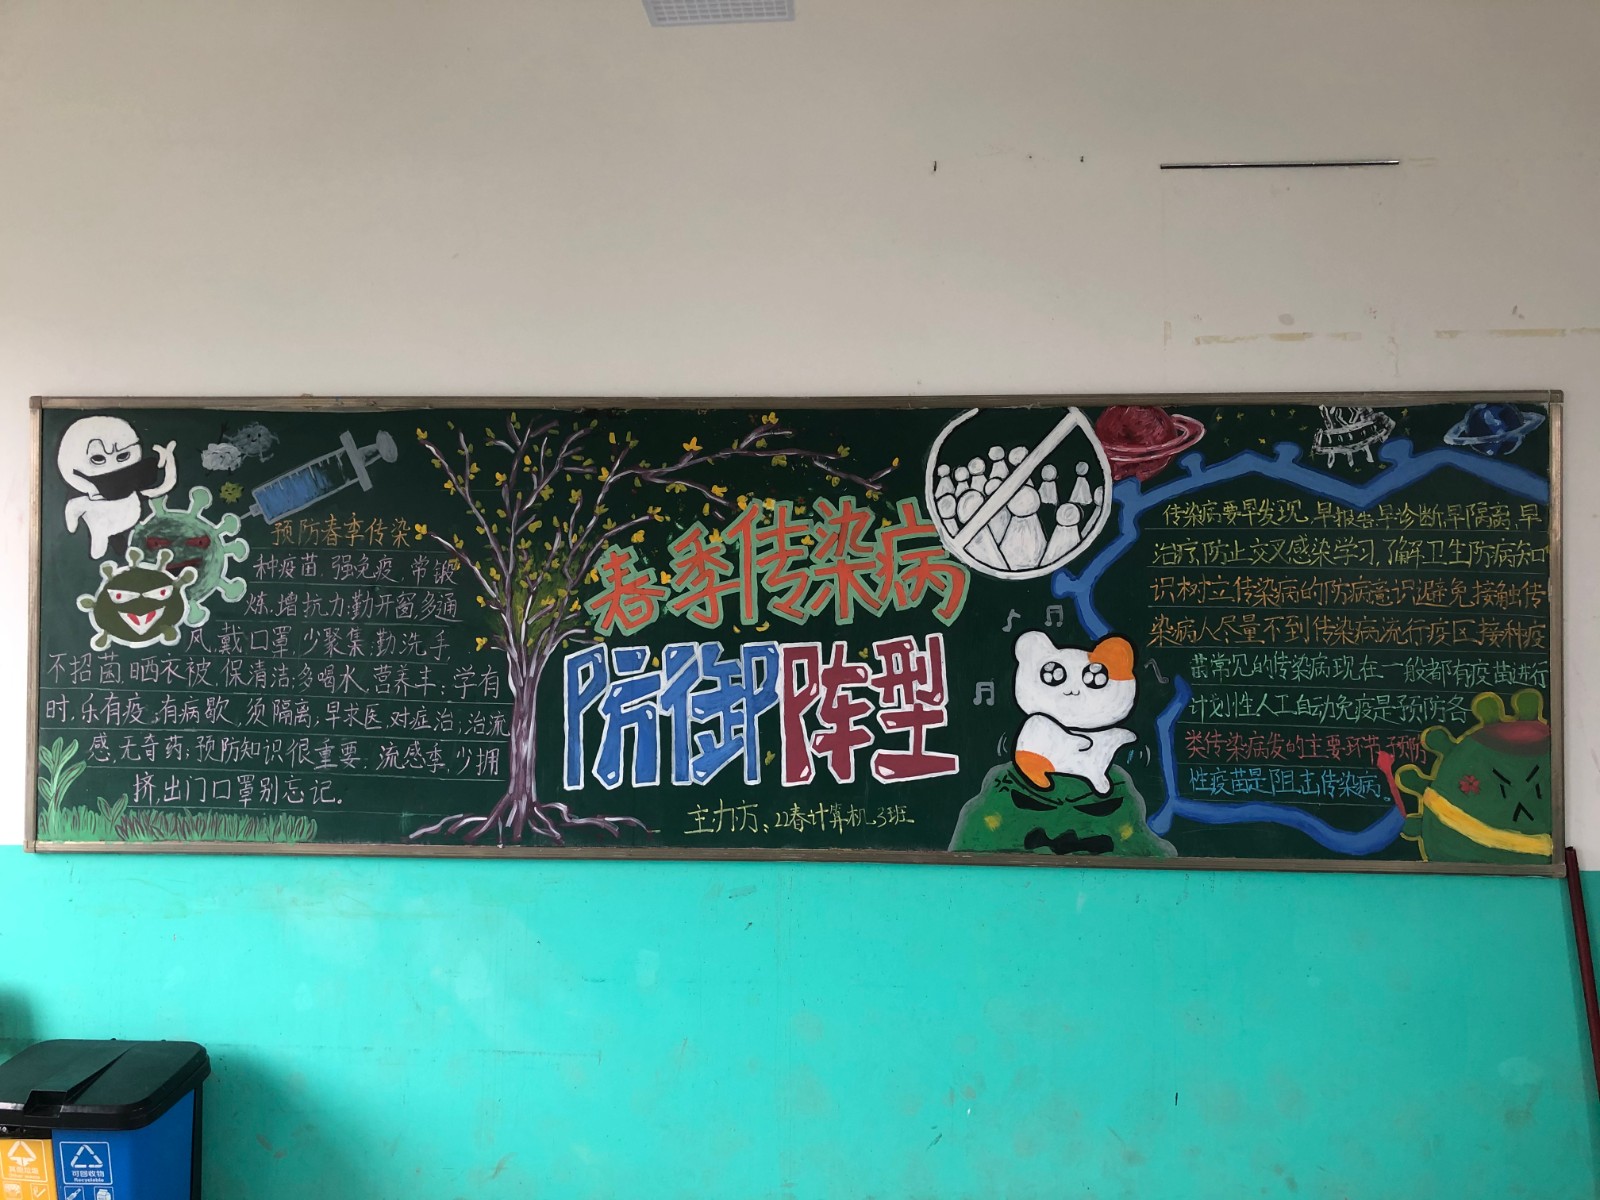 预防春季传染
种疫苗,强免疫,常锻
炼,增抗力;勤开窗,多通
风,戴口罩,少聚集;勤洗手,
不招菌,晒衣被,保清洁;多喝水,营养丰;学有
时,乐有疫,有病歇,须隔离;早求医,对症治;治流
感,无奇药;预防知识很重要,流感季,少拥
挤,出门口罩别忘记。
春季传染病
防御阵型
主力方:22春计算机3班
传染病要早发现,早报告早诊断,早隔离,早
治疗,防止交叉感染学习,了解卫生防病知
识树立传染病的防病意识避免接触传
染病人尽量不到传染病流行疫区接种疫
苗常见的传染病现在一般都有疫苗进行
计划性人工自动免疫是预防各
类传染病发的主要环节,预防
性疫苗是阻击传染病。
可回收物
Recyclable